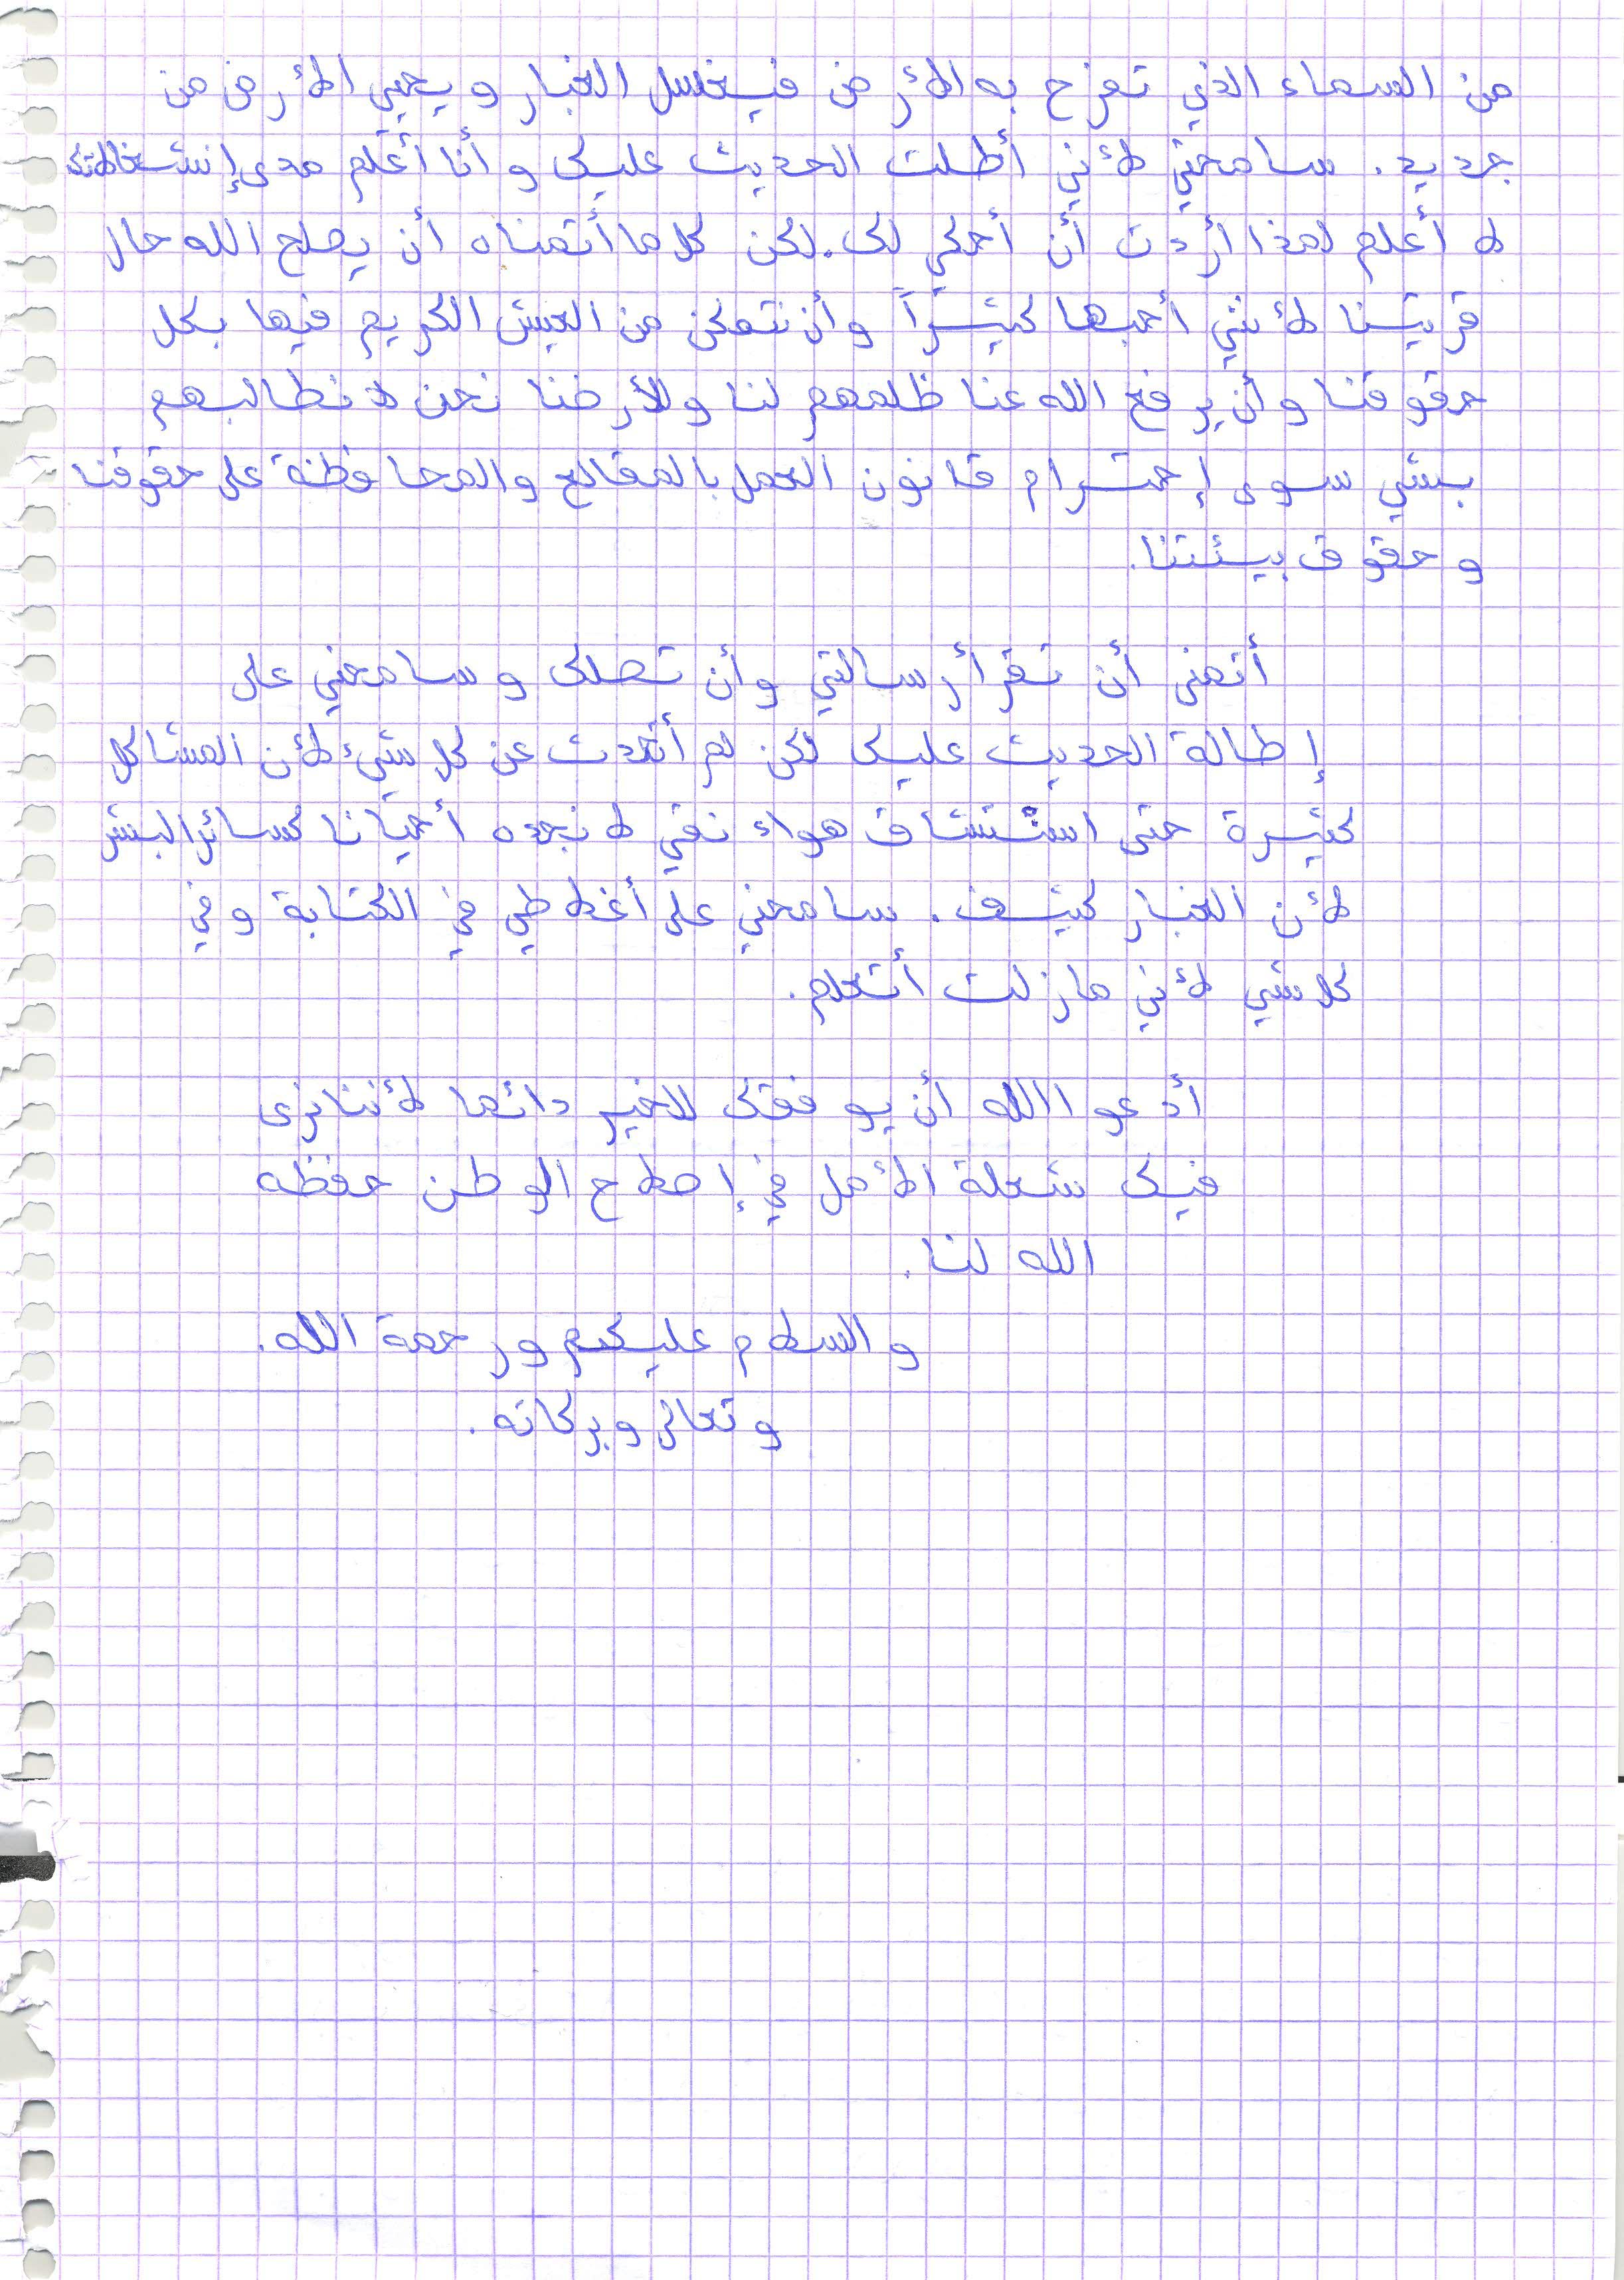 من السماء الذي تفرح به الأرض فيغسل الغبار و يحيي الأرض من
جديد. سامحني لأني أطلت الحديث عليك و أنا أعلم مدى إنشغالاتك
لا أعلم لمذا أردت أن أحكي لك. لكن كل ما أتمناه أن يصلح الله حال
قريتنا لأنني أحبها كثيراً وأن نتمكن من العيش الكريم فيها بكل
حقوقنا وأن يرفع الله عنا ظلمهم لنا ولأرضنا نحن لا نطالبهم
بشي سوى إحترام قانون العمل بالمقالع والمحافظة على حقوقنا
و حقوق بيئتنا.
أتمنى أن تقرأ رسالتي وأن تصلك و سامحني على
إطالة الحديث عليك لكن لم أتحدث عن كل شيء لأن المشاكل
كثيرة حتى استنشاق هواء نقي لا نجده أحيانا كسائر البشر
لأن الغبار كثيف. سامحني على أغلاطي في الكتابة وفي
كل شي لأني مازلت أتعلم.
أدعو االله أن يوفقك للاخير دائما لأننا نرى
فيك شعلة الأمل في إصلاح الوطن حفظه
الله لنا.
و السلام عليكم ورحمة الله.
و تعالى وبركاته.